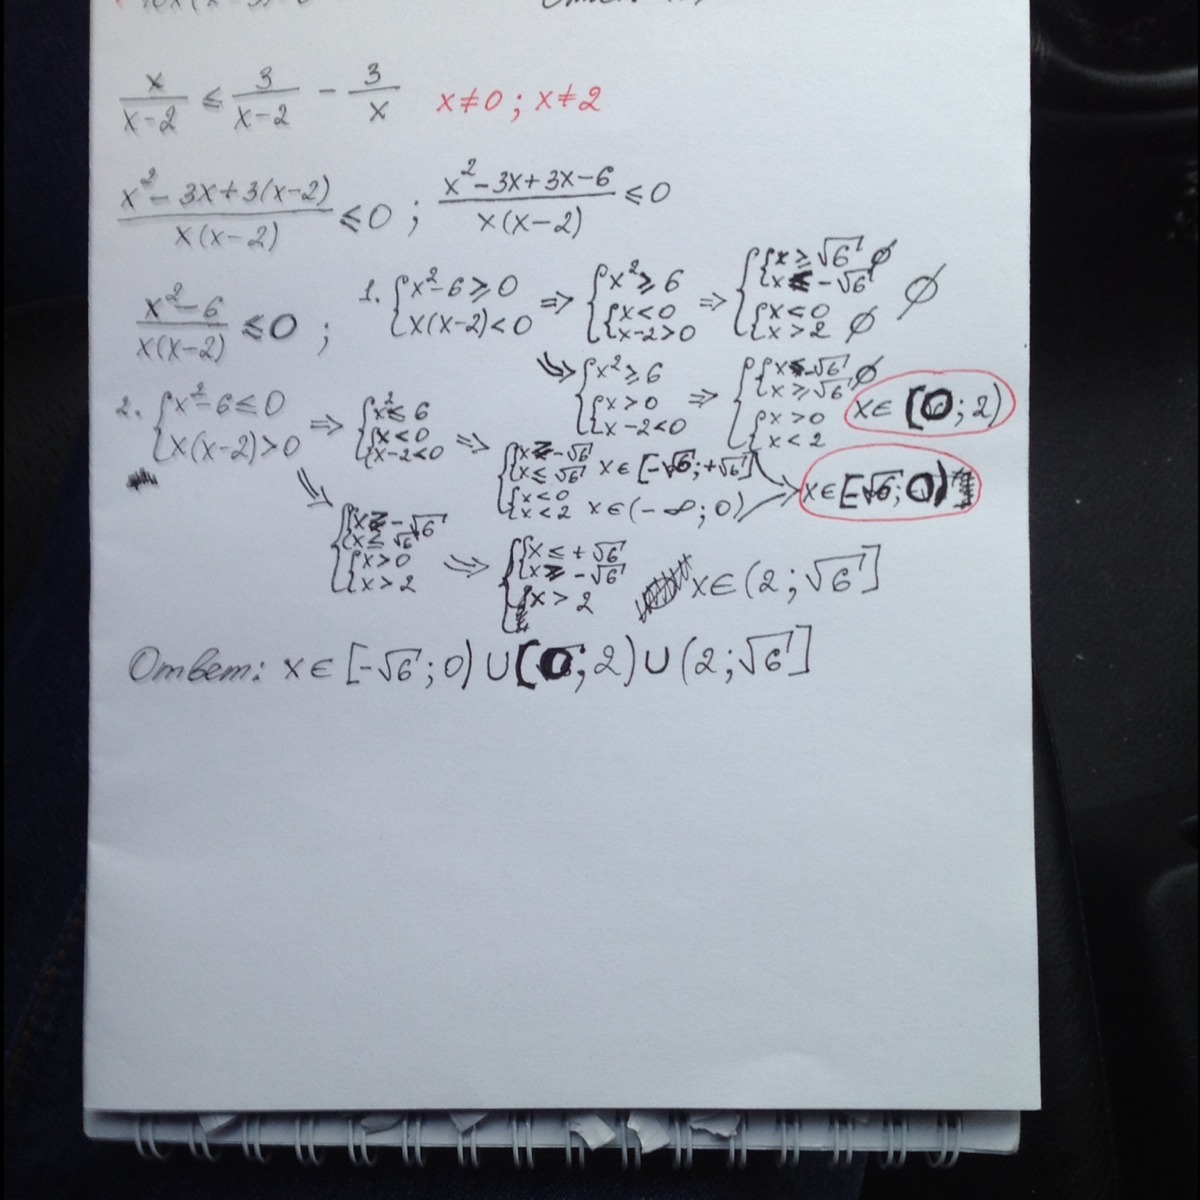 x/(x-2) ≤ 3/(x-2) - 3/x x≠0; x≠2
(x²-3x+3(x-2))/(x(x-2)) ≤0; (x²-3x+3x-6)/(x(x-2)) ≤0
(x²-6)/(x(x-2)) ≤0; 1. {x²-6≥0 {x(x-2)<0 => {x²≥6 {{x<0 {x-2>0 => {{x≥√6 {x≤-√6 ∅ {{x<0 {x>2 ∅ ∅
=> {x²≥6 {{x>0 {x-2<0 => {{x≤-√6 {x≥√6 ∅ {{x>0 {x<2 x∈(0;2)
2. {x²-6≤0 {x(x-2)>0 => {x²≤6 {{x<0 {x-2<0 => {{x≥-√6 {x≤√6 x∈[-√6;+√6] {{x<0 {x<2 x∈(-∞;0) x∈[-√6;0)
=> {{x≥-√6 {x≤√6 {{x>0 {x>2 => {{x≤+√6 {x≥-√6 {x>2 x∈(2;√6]
Ответ: x∈[-√6;0)∪(0;2)∪(2;√6]